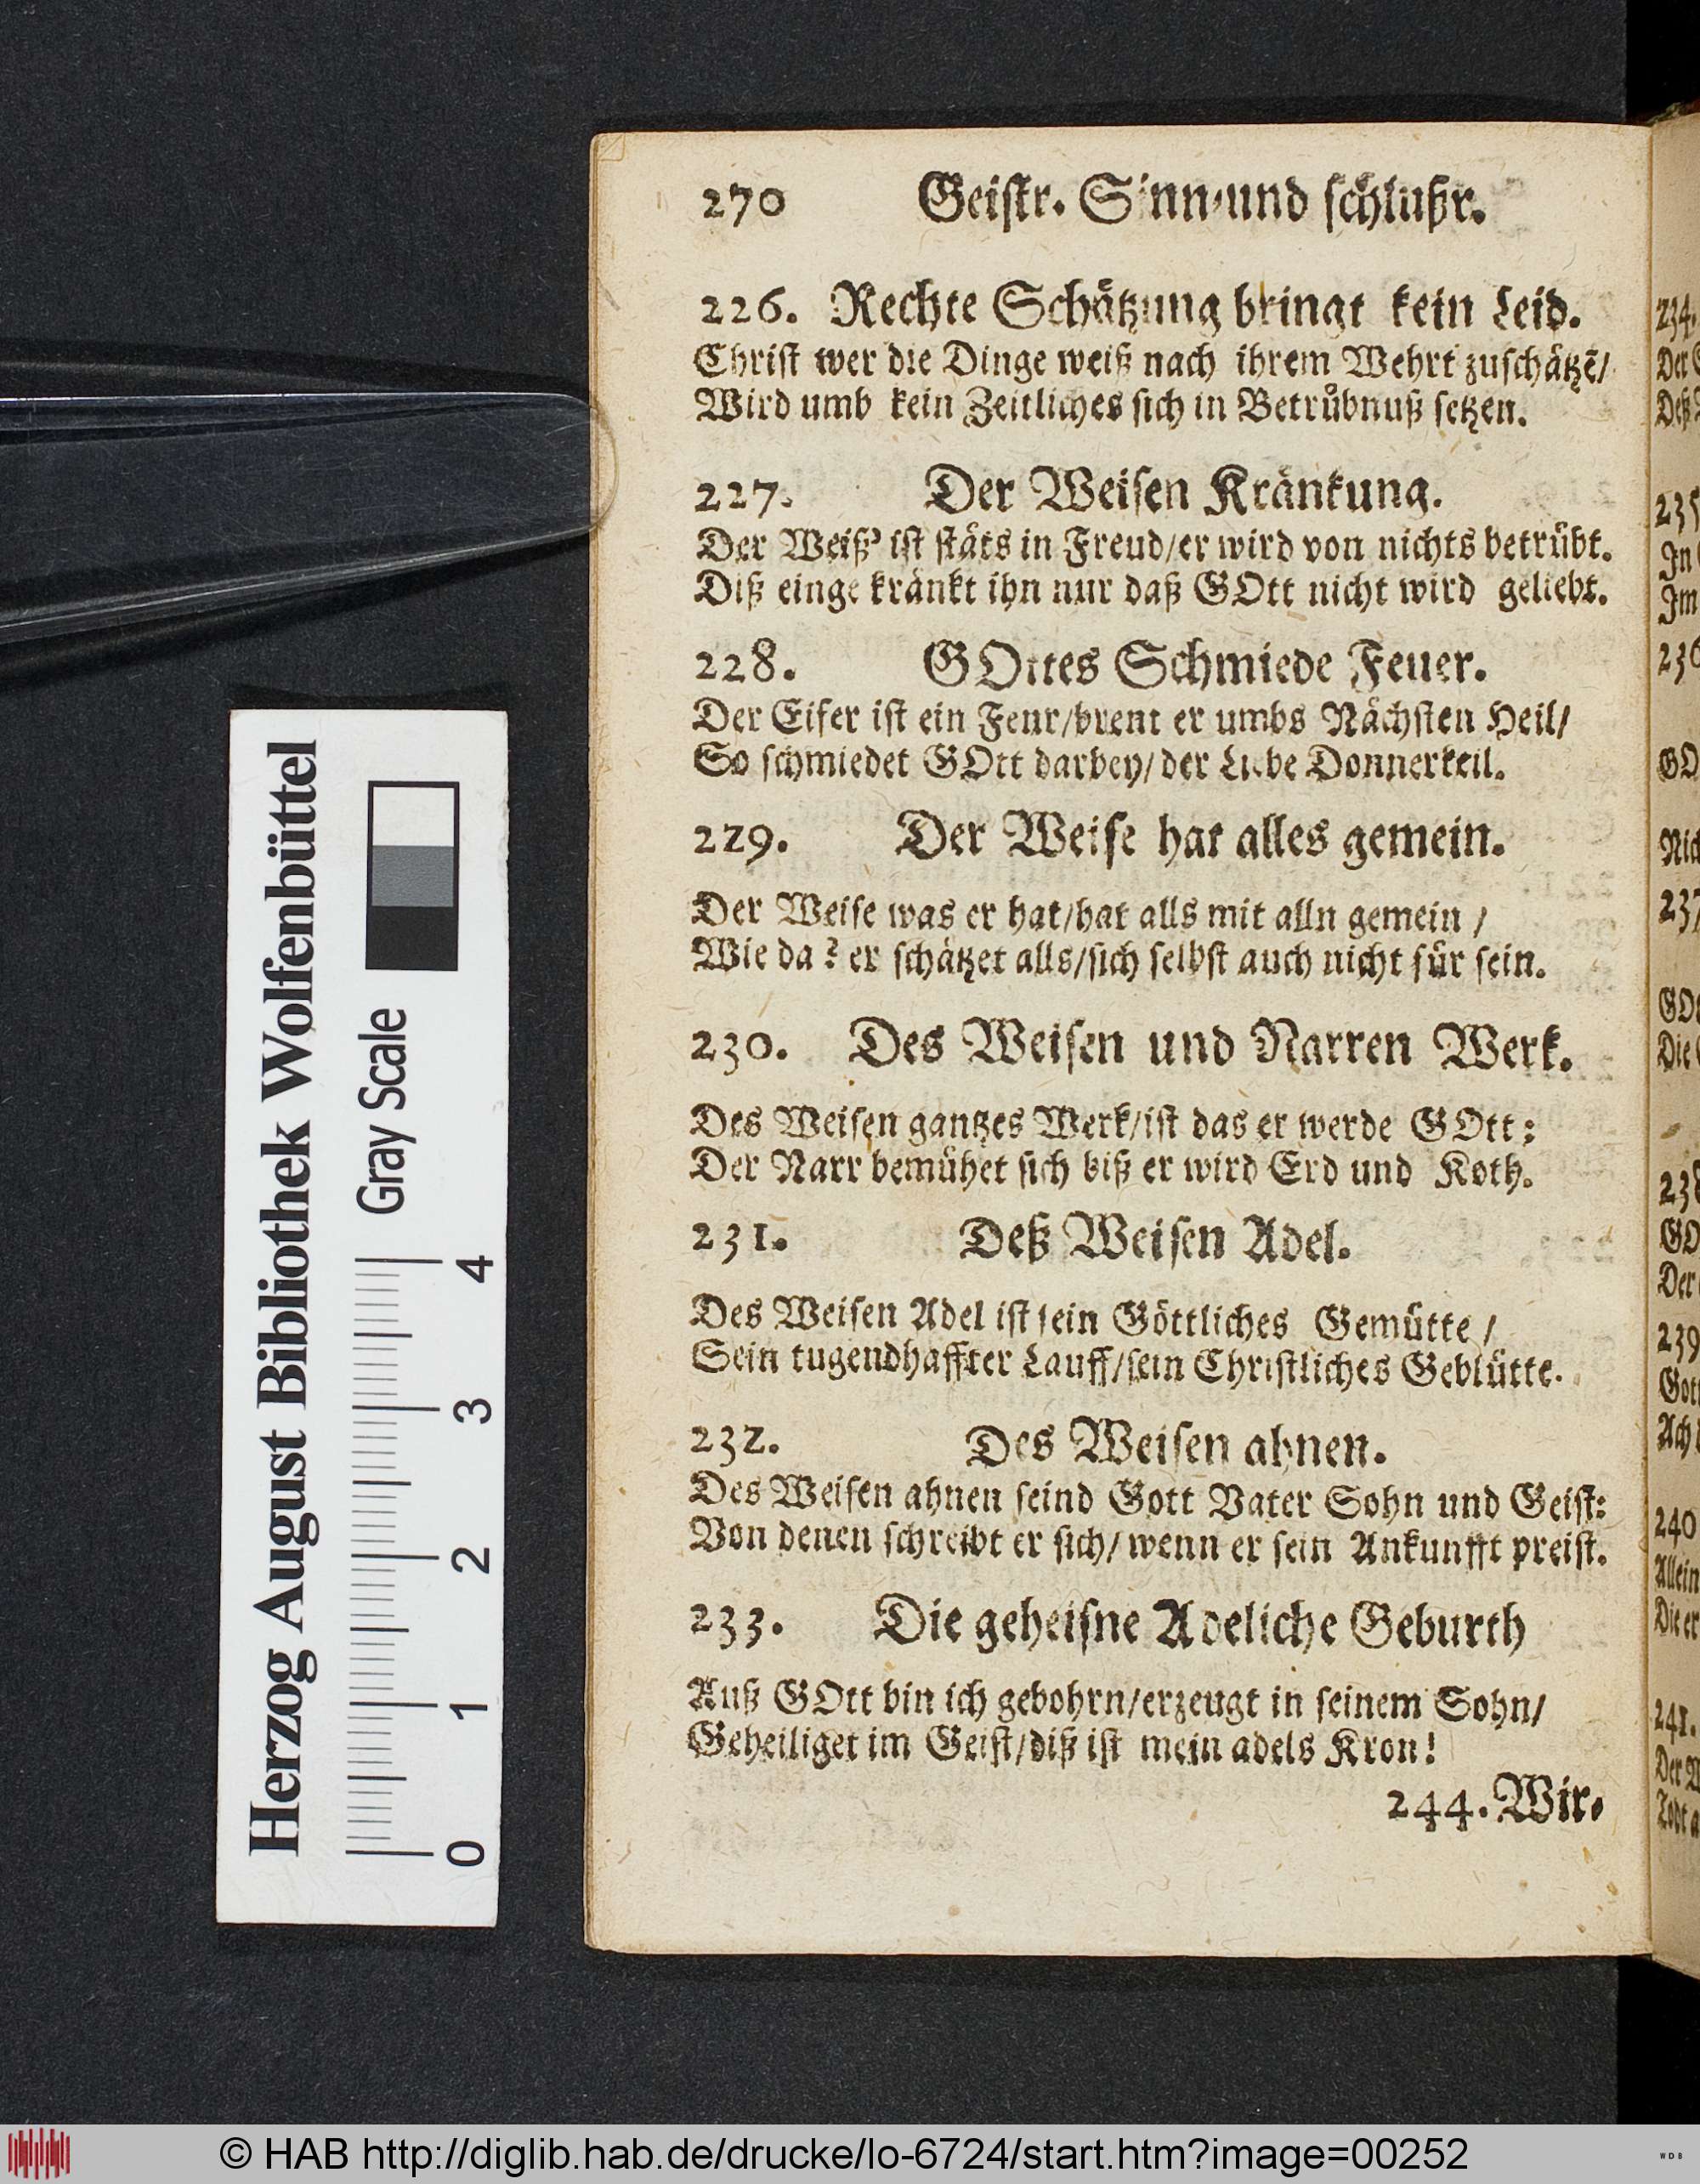 270 Geistr. Sinn-und schlußr.
226. Rechte Schätzung bringt kein Leid.
Christ wer die Dinge weiß nach ihrem Wehrt zuschätzē/
Wird umb kein Zeitliches sich in Betrübnuß setzen.
227. Der Weisen Kränkung.
Der Weiß' ist stäts in Freud/er wird von nichts betrübt.
Diß einge kränkt ihn nur daß GOtt nicht wird geliebt.
228. GOttes Schmiede Feuer.
Der Eifer ist ein Feur/brent er umbs Nächsten Heil/
So schmiedet GOtt darbey/der Liebe Donnerkeil.
229. Der Weise hat alles gemein.
Der Weise was er hat/hat alls mit alln gemein /
Wie da? er schätzet alls/sich selbst auch nicht für sein.
230. Des Weisen und Narren Werk.
Des Weisen gantzes Werk/ist das er werde GOtt:
Der Narr bemühet sich biß er wird Erd und Koth.
231. Deß Weisen Adel.
Des Weisen Adel ist sein Göttliches Gemütte /
Sein tugendhaffter Lauff/sein Christliches Geblütte.
232. Des Weisen ahnen.
Des Weisen ahnen seind Gott Vater Sohn und Geist:
Von denen schreibt er sich/ wenn er sein Ankunfft preist.
233. Die geheisne Adeliche Geburth
Auß GOtt bin ich gebohrn/erzeugt in seinem Sohn/
Geheiliget im Geist/diß ist mein adels Kron!
244. Wir.
Herzog August Bibliothek Wolfenbüttel
Gray Scale
0 1 2 3 4
234.
Der
235
In
Im
236
GO
Nic
237
Die
GO
Der
239
Gott
Ach
240
Allein
Die er
241.
Der
© HAB http://diglib.hab.de/drucke/lo-6724/start.htm?image=00252
WDB